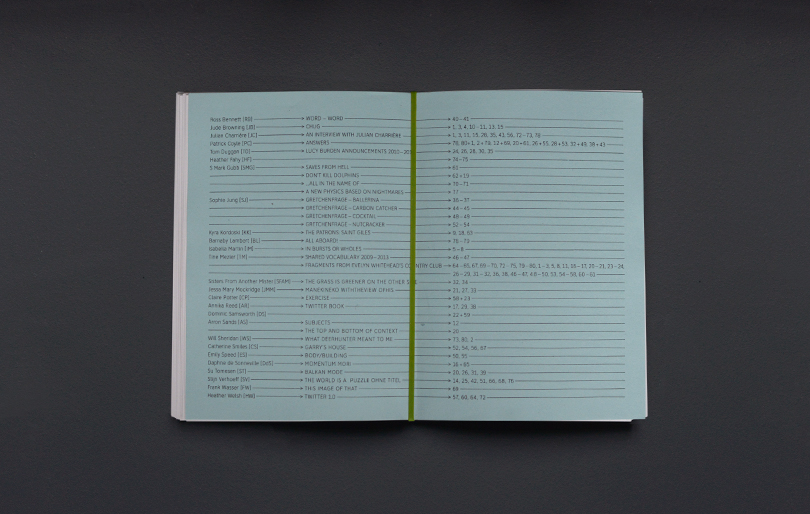 Ross Bennett [RB] WORD – WORD 40–41
Jude Browning [JB] CHUG 1, 3, 4, 10–11, 13, 15
Julian Charrière [JC] AN INTERVIEW WITH JULIAN CHARRIÈRE 1, 3, 11, 15, 26, 35, 41, 56, 72–73, 78
Patrick Coyle [PC] ANSWERS
Tom Duggan [TD] LUCY BURDEN ANNOUNCEMENTS 24, 26, 28, 30, 35
Heather Fahy [HF] 74–75
S Mark Gubb [SMG] SAVES FROM HELL 81
DON'T KILL DOLPHINS 62+19
...ALL IN THE NAME OF 70–71
A NEW PHYSICS BASED ON NIGHTMARES 17
Sophie Jung [SJ] GRETCHENFRAGE – BALLERINA 36–37
GRETCHENFRAGE – CARBON CATCHER 44–45
GRETCHENFRAGE – COCKTAIL 48–49
GRETCHENFRAGE – NUTCRACKER 52–54
Kyra Kordoski [KK] THE PATRONS SAINT GILES 9, 18, 63
Barnaby Lambert [BL] ALL ABOARD! 76–79
Isabella Martin [IM] IN BURSTS OR WHOLES 5–8
Eike Meyer [EM] SHARED VOCABULARY 2009–2013 46–47
FRAGMENTS FROM EVELYN WHITEHEAD'S COUNTRY CLUB
Sisters From Another Mister [SFAM] THE GRASS IS GREENER ON THE OTHER 32, 34
Jess Mary Mockridge [JMM] 21, 27, 33
Claire Potter [CP] EXERCISE 59+23
Annike Reed [AR] TWITTER BOOK 17, 29, 36
Dominic Samsworth [DS] 22+59
Arron Sands [AS] SUBJECTS 12
THE TOP AND BOTTOM OF CONTEXT 20
Will Sheridan [WS] WHAT DEERHUNTER MEANT TO ME 73, 80, 2
Catherine Smiles [CS] GARRY'S HOUSE 52, 54, 56, 67
Emily Speed [ES] BODY/BUILDING 50, 55
MOMENTUM MORI 16+65
Su Tomesen [ST] BALKAN MODE 29, 26, 31, 39
Stijn Verhoeff [SV] THE WORLD IS A PUZZLE OHNE TITEL 14, 25, 42, 51, 66, 68, 76
Frank Wasser [FW] THIS IMAGE OF THAT 69
Heather Welsh [HW] TWITTER 1.0 57, 60, 64, 72